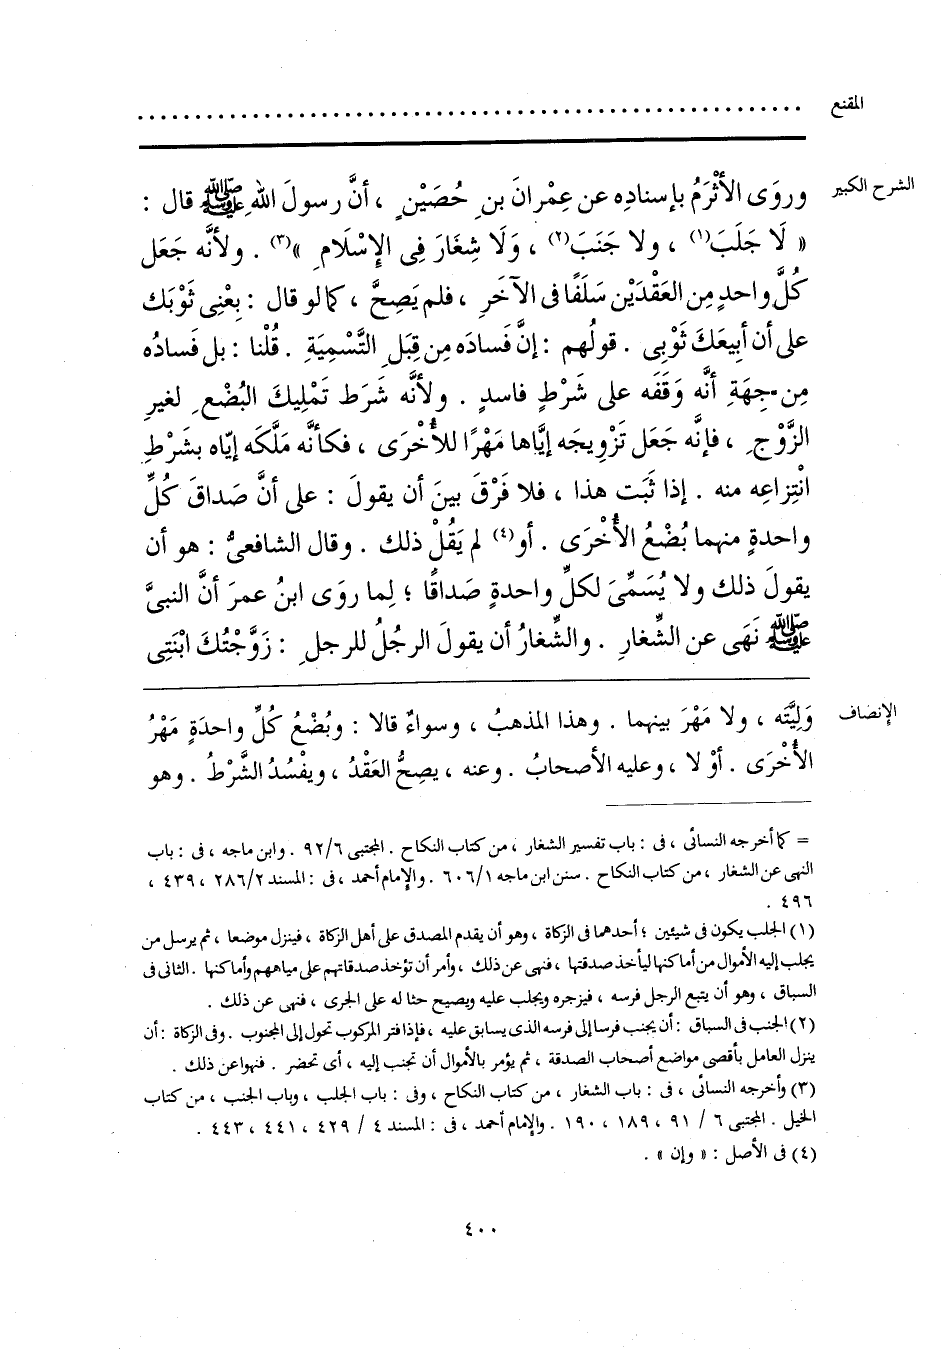 المقنع ......................................................
الشرح الكبير
وروَى الأَثْرَمُ بإسنادِه عن عِمْرانَ بنِ حُصَيْنٍ ، أنَّ رسولَ اللهِ ﷺ قال :
« لَا جَلَبَ(١) ، ولا جَنَبَ(٢) ، وَلَا شِغَارَ فِى الإِسْلَامِ »(٣) . ولأنَّه جَعَل
كُلَّ واحدٍ مِن العَقْدَيْن سَلَفًا فى الآخَرِ ، فلم يَصِحَّ ، كما لو قال : بِعْنِى ثَوْبَك
على أن أبِيعَكَ ثَوْبِى . قولُهم : إنَّ فَسادَه مِن قِبَلِ التَّسْمِيَةِ . قُلْنا : بل فَسادُه
مِن جِهَةِ أنَّه وَقَفَه على شَرْطٍ فاسدٍ . ولأنَّه شَرَط تَمْلِيكَ البُضْعِ لغيرِ
الزَّوْجِ ، فإنَّه جَعَل تَزْوِيجَه إيَّاها مَهْرًا للأُخْرَى ، فكأنَّه مَلَّكَه إيّاه بشَرْطِ
انْتِزاعِه منه . إذا ثَبَت هذا ، فلا فَرْقَ بينَ أن يقولَ : على أنَّ صَداقَ كُلِّ
واحدةٍ منهما بُضْعُ الأُخْرَى . أو(٤) لم يَقُلْ ذلك . وقال الشافعىُّ : هو أن
يقولَ ذلك ولا يُسَمِّىَ لكلِّ واحدةٍ صَداقًا ؛ لِما روَى ابنُ عمرَ أنَّ النبىَّ
ﷺ نَهَى عن الشِّغارِ . والشِّغارُ أن يقولَ الرجُلُ للرجلِ : زَوَّجْتُكَ ابْنَتِى
الإنصاف
وَلِيَّتَه ، ولا مَهْرَ بينهما . وهذا المذهبُ ، وسواءٌ قالا : وبُضْعُ كُلِّ واحدَةٍ مَهْرُ
الأُخْرَى . أوْ لا ، وعليه الأصحابُ . وعنه ، يصِحُّ العَقْدُ ، ويفْسُدُ الشَّرْطُ . وهو
= كما أخرجه النسائى ، فى : باب تفسير الشغار ، من كتاب النكاح . المجتبى ٩٢/٦ . وابن ماجه ، فى : باب
النهى عن الشغار ، من كتاب النكاح . سنن ابن ماجه ٦٠٦/١ . والإمام أحمد ، فى : المسند ٢٨٦/٢ ، ٤٣٩ ،
٤٩٦ .
(١) الجلب يكون فى شيئين ؛ أحدهما فى الزكاة ، وهو أن يقدم المصدق على أهل الزكاة ، فينزل موضعا ، ثم يرسل من
يجلب إليه الأموال من أماكنها ليأخذ صدقتها ، فنهى عن ذلك ، وأمر أن تؤخذ صدقاتهم على مياههم وأماكنها . الثانى فى
السباق ، وهو أن يتبع الرجل فرسه ، فيزجره ويجلب عليه ويصيح حثا له على الجرى ، فنهى عن ذلك .
(٢) الجنب فى السباق : أن يجنب فرسا إلى فرسه الذى يسابق عليه ، فإذا فتر المركوب تحول إلى المجنوب . وفى الزكاة : أن
ينزل العامل بأقصى مواضع أصحاب الصدقة ، ثم يؤمر بالأموال أن تجنب إليه ، أى تحضر . فنهوا عن ذلك .
(٣) وأخرجه النسائى ، فى : باب الشغار ، من كتاب النكاح ، وفى : باب الجلب ، وباب الجنب ، من كتاب
الخيل . المجتبى ٦ / ٩١ ، ١٨٩ ، ١٩٠ . والإمام أحمد ، فى : المسند ٤ / ٤٢٩ ، ٤٤١ ، ٤٤٣ .
(٤) فى الأصل : « وإن » .
٤٠٠